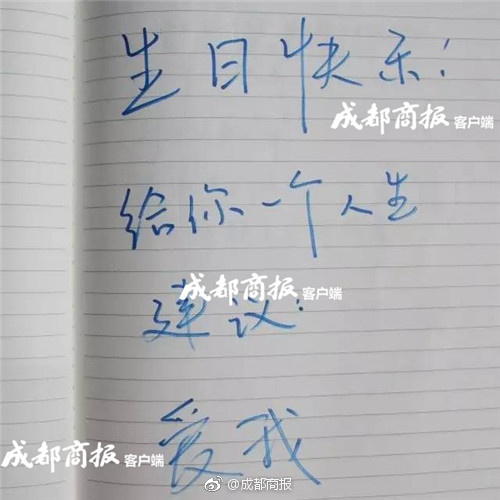 生日快乐!
成都商报 客户端
给你一个人生
成都商报 客户端
建议:
成都商报 客户端
爱我
@成都商报